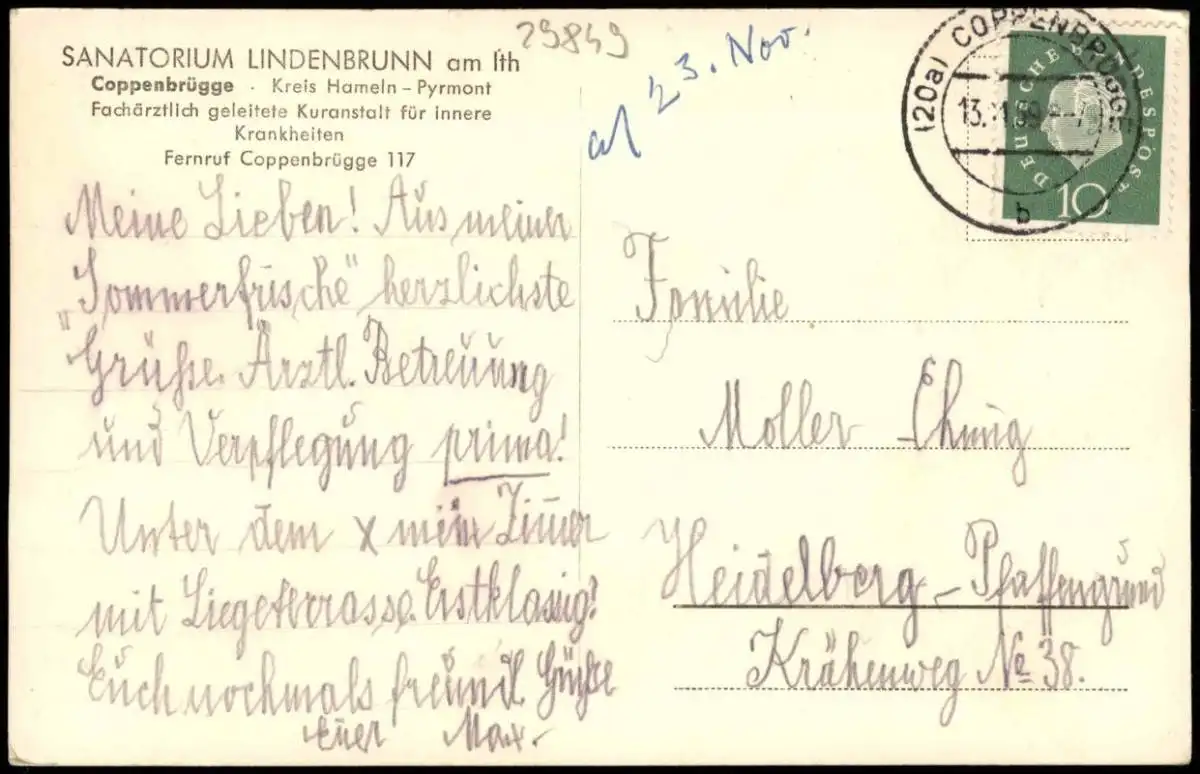 29849
al 23. Nov.
SANATORIUM LINDENBRUNN am Ith
Coppenbrügge · Kreis Hameln – Pyrmont
Fachärztlich geleitete Kuranstalt für innere
Krankheiten
Fernruf Coppenbrügge 117
Meine Lieben! Aus meiner
„Sommerfrische" herzlichste
Grüße. Ärztl. Betreuung
und Verpflegung prima!
Unter dem x mein Zimer
mit Liegeterrasse. Erstklassig!
Euch nochmals freundl. Grüße
Euer Max.-
(20a) COPPENBRÜGGE
b
DEUTSCHE BUNDESPOST
10
Familie
Moller - Ehmig
Heidelberg - Pfaffengrund
Krähenweg No 38.